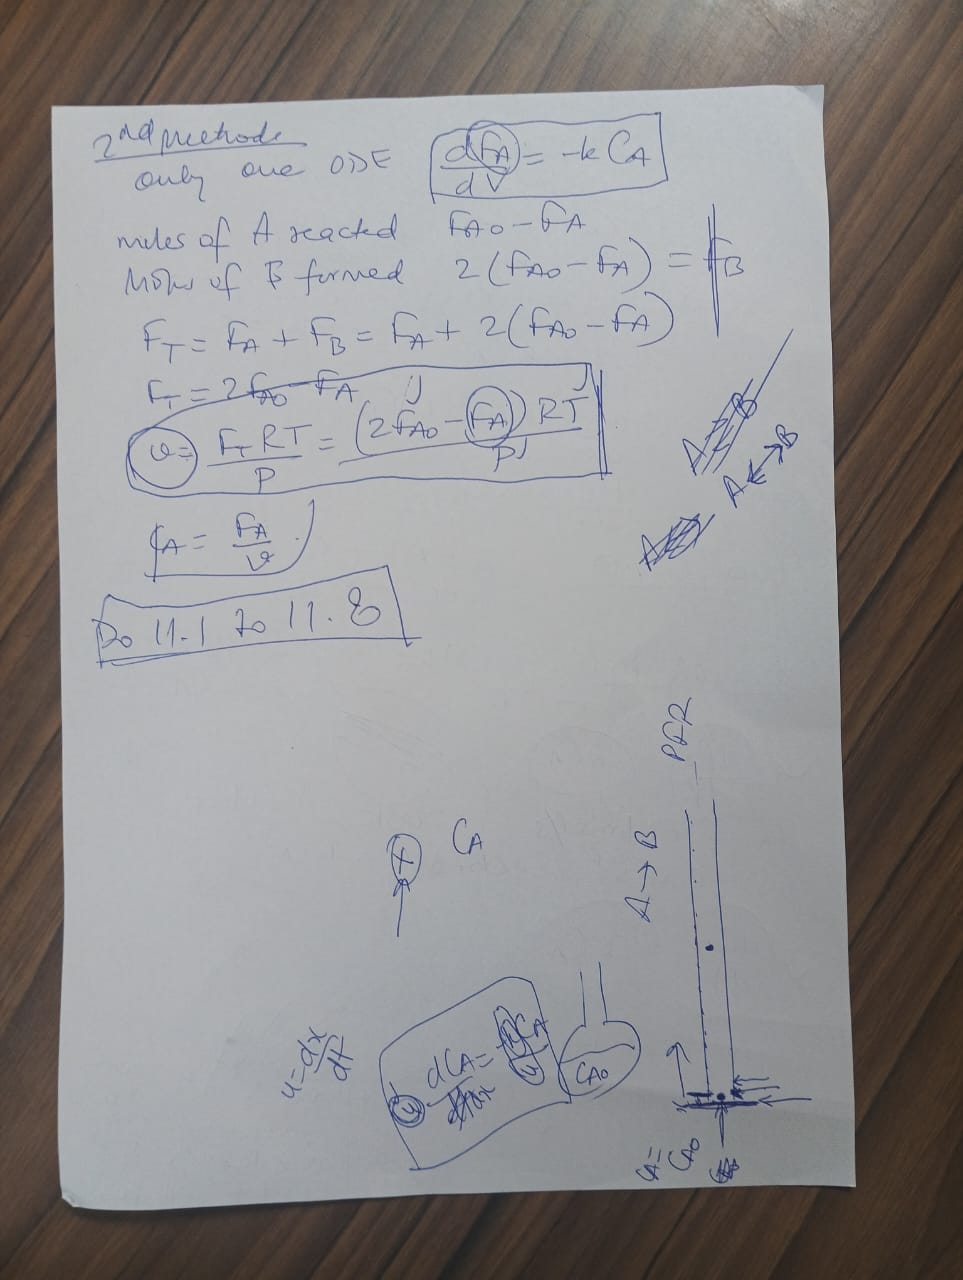 2nd methode
only one ODE dFA/dV = -k CA
moles of A reacted FA0 - FA
Moles of B formed 2(FA0 - FA) = FB
FT = FA + FB = FA + 2(FA0 - FA)
FT = 2FA0 - FA
v = FT RT/P = (2FA0 - FA) RT/P
CA = FA/v
Do 11.1 to 11.8
A B
A B
PFR
A → B
+ CA
u = dx/dt
u dCA/dx =
CA
CA0
CA = CA0